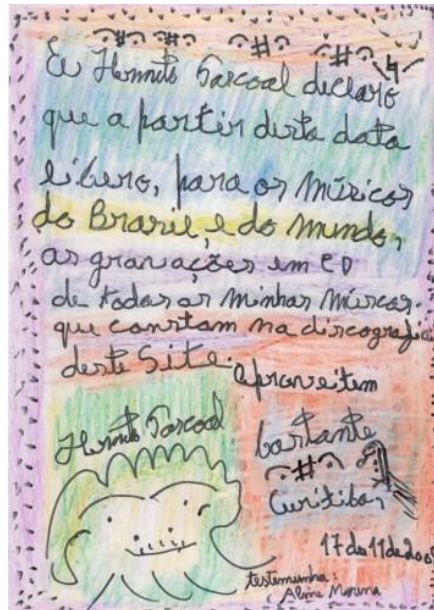 Eu Hermeto Pascoal declaro
que a partir desta data
libero, para os músicos
do Brasil, e do mundo,
as gravações em CD
de todas as minhas músicas.
que constam na discografia
deste Site.
Aproveitem
bastante
Hermeto Pascoal
Curitiba,
17 de 11 de
testemunha:
Aline Morena